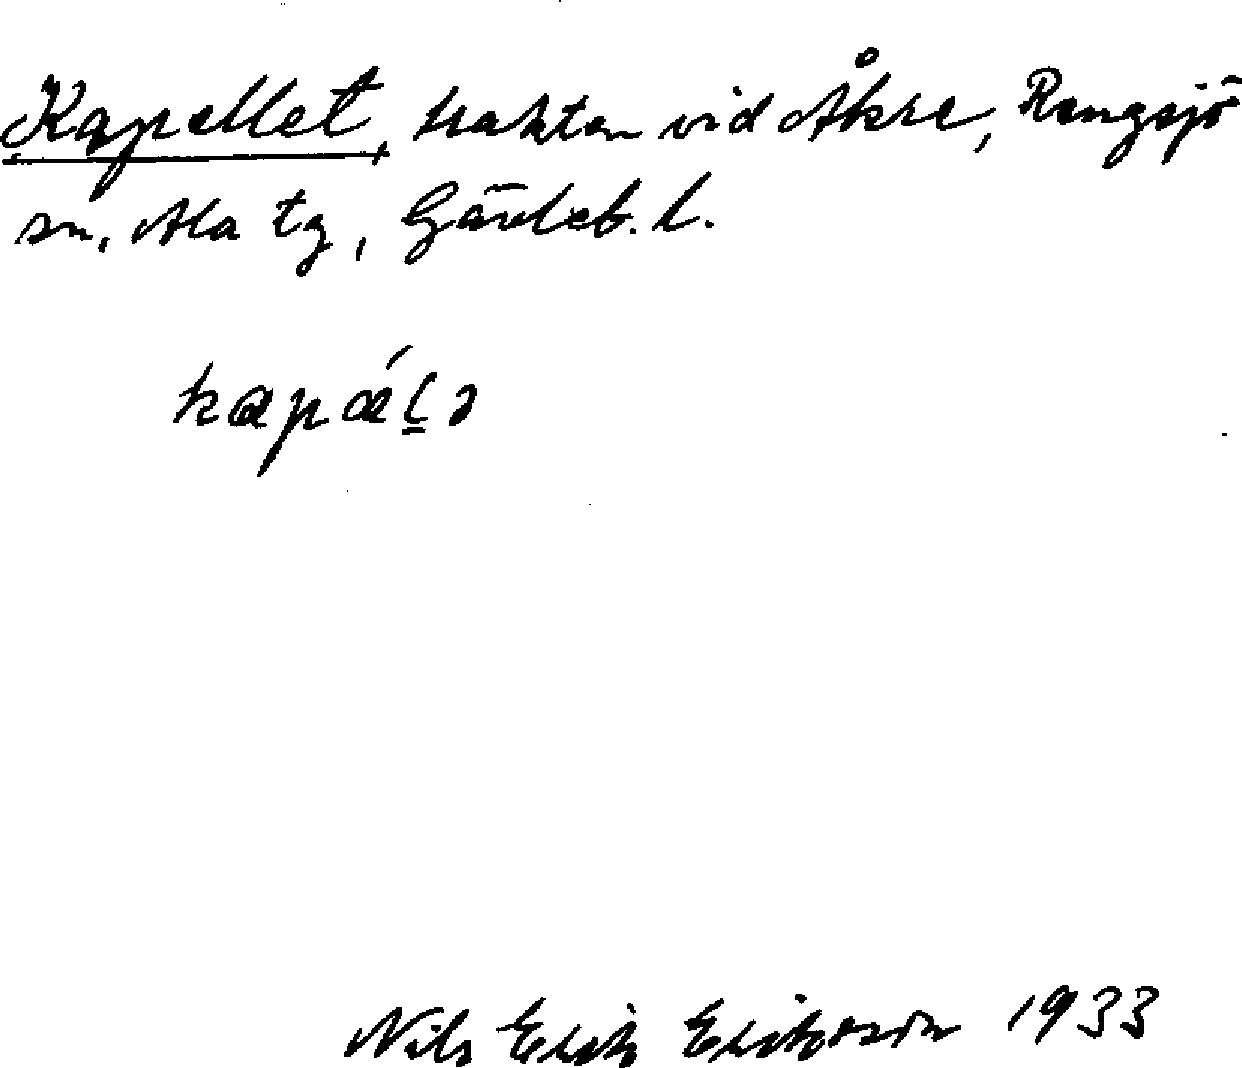 Kapellet, trakten vid Åkre, Rengsjö
sn, Ala tg, Gävleb. l.
kapǽl̲ə
Nils Erik Eriksson 1933